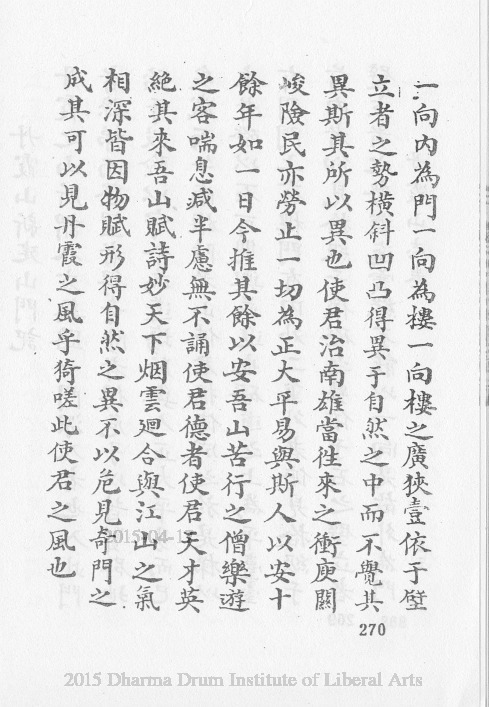 一向內為門一向為樓一向樓之廣狹壹依于壁
立者之勢橫斜凹凸得異于自然之中而不覺其
異斯其所以異也使君治南雄當徃來之衝庾關
峻險民亦勞止一切為正大平易與斯人以安十
餘年如一日今推其餘以安吾山苦行之僧樂遊
之客喘息减半慮無不誦使君德者使君天才英
絶其來吾山賦詩妙天下烟雲廻合與江山之氣
相深皆因物賦形得自然之異不以危見奇門之
成其可以見丹霞之風乎猗嗟此使君之風也
270
2015 Dharma Drum Institute of Liberal Arts